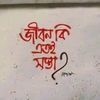 জীবন কি
এতই
সস্তা ?